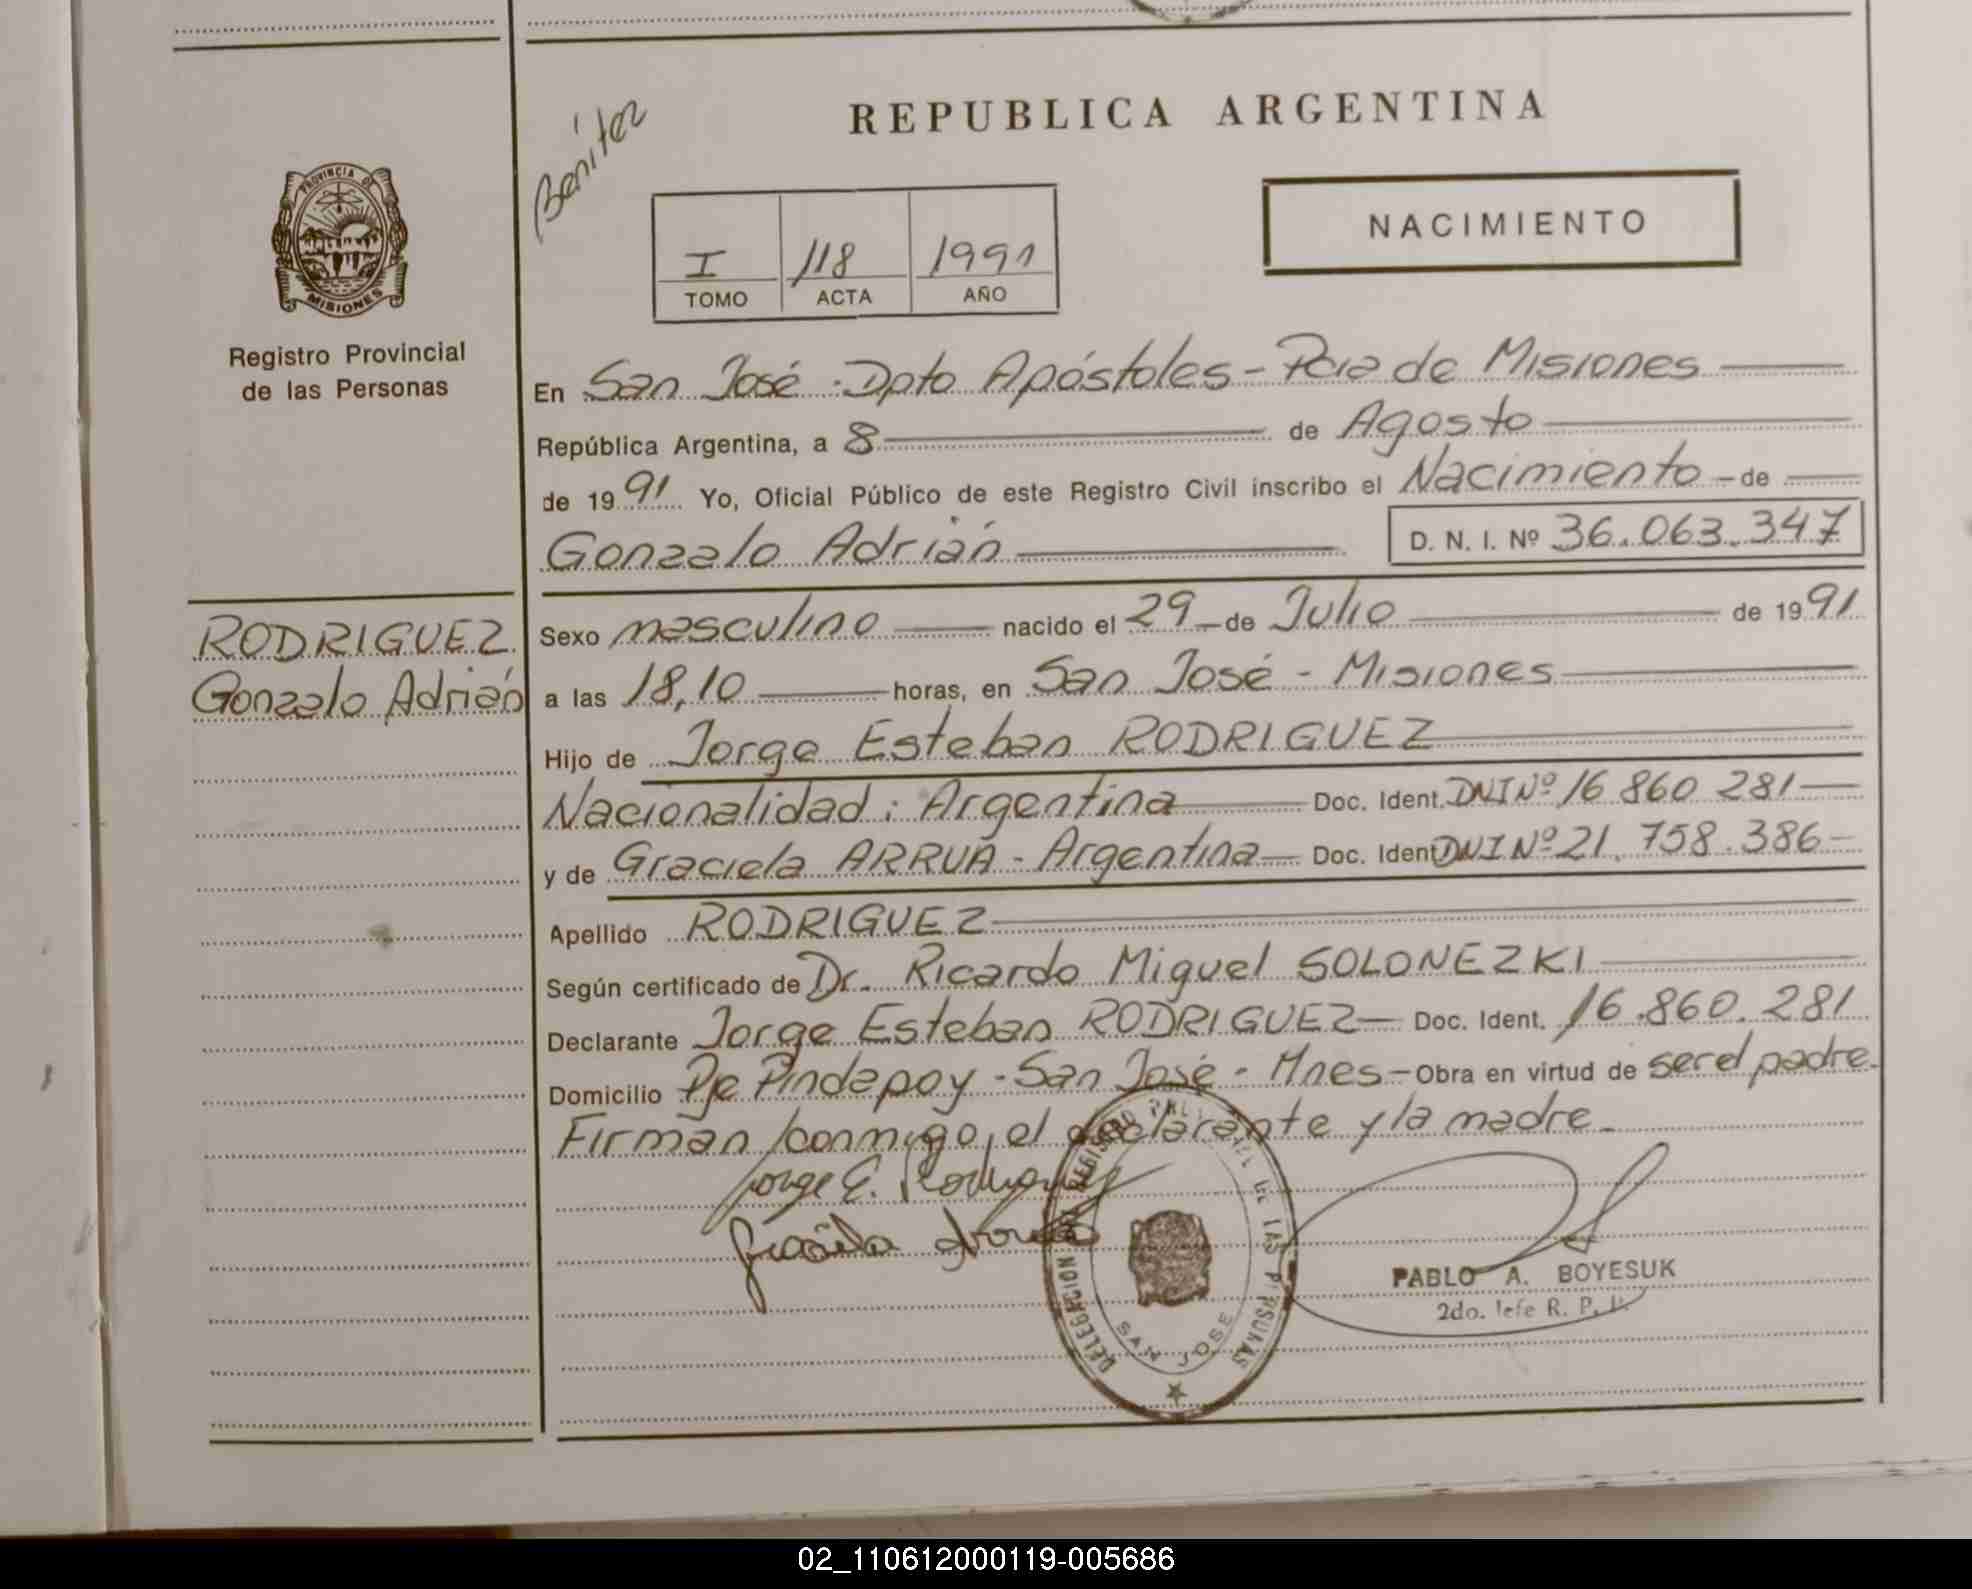 REPUBLICA ARGENTINA
Benítez
I 118 1991
TOMO ACTA AÑO
NACIMIENTO
PROVINCIA DE
MISIONES
Registro Provincial
de las Personas
En San José - Dpto Apóstoles - Pcia de Misiones
República Argentina, a 8 de Agosto
de 1991 Yo, Oficial Público de este Registro Civil inscribo el Nacimiento - de
Gonzalo Adrián D. N. I. Nº 36.063.347
RODRIGUEZ
Gonzalo Adrián
Sexo masculino nacido el 29 - de Julio de 1991
a las 18,10 horas, en San José - Misiones
Hijo de Jorge Esteban RODRIGUEZ
Nacionalidad: Argentina Doc. Ident. DNI Nº 16 860 281
y de Graciela ARRUA - Argentina Doc. Ident DNI Nº 21.758.386
Apellido RODRIGUEZ
Según certificado de Dr. Ricardo Miguel SOLONEZKI
Declarante Jorge Esteban RODRIGUEZ Doc. Ident. 16.860.281
Domicilio Pje Pindapoy - San José - Mnes - Obra en virtud de ser el padre.
Firman conmigo, el declarante y la madre.
Jorge E. Rodriguez
Graciela Arrua
DELEGACION REGISTRO DE LAS PERSONAS
SAN JOSE
PABLO A. BOYESUK
2do. Jefe R. P. P.
02_110612000119-005686